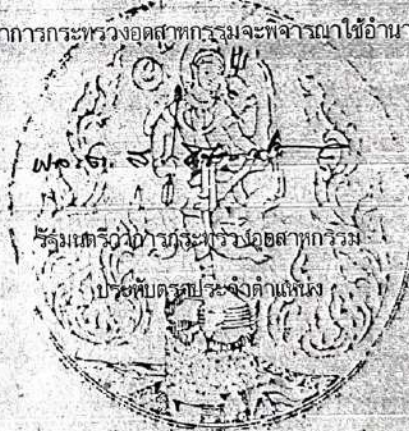 าการกระทรวงอุตสาหกรรมจะพิจารณาใช้อำนา
รัฐมนตรีว่าการกระทรวงอุตสาหกรรม
ประทับตราประจำตำแหน่ง